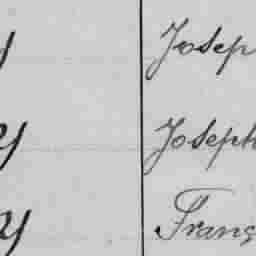 y Josep
y Joseph
y Franç